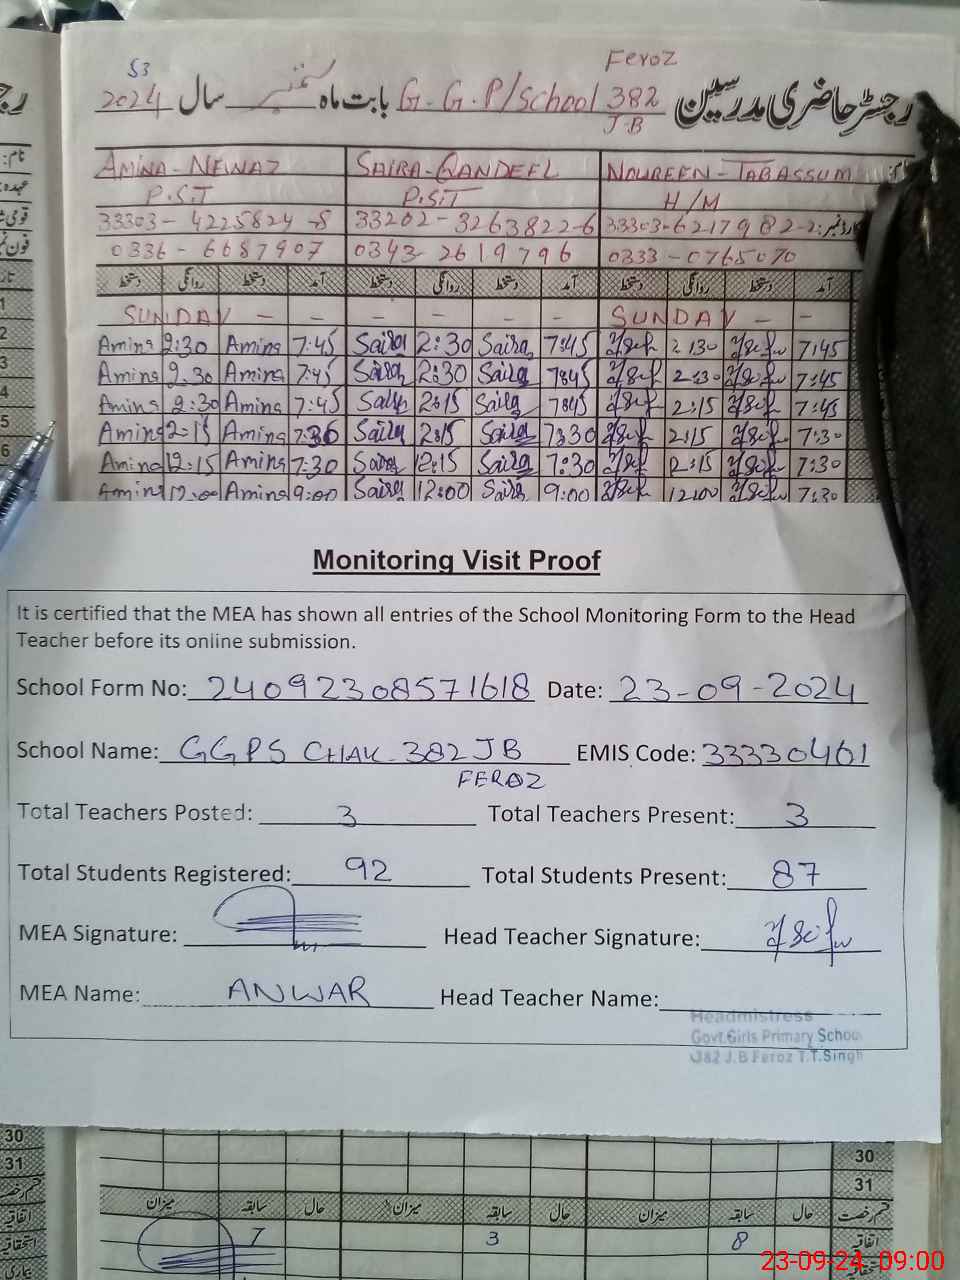 53
Feroz
رجسٹر حاضری مدرسین G.G.P/School 382 J.B بابت ماہ ستمبر سال 2024
AMINA-NEWAZ SAIRA-QANDEEL NOUREEN-TABASSUM
P.S.T P.S.T H/M
33303-4225824-8 33202-3263822-6 33303-6217982-2
0336-6687907 0343-2619796 0333-0765070
دستخط روانگی دستخط آمد دستخط روانگی دستخط آمد دستخط روانگی دستخط آمد
SUNDAY - - - - - - SUNDAY - -
Amina 2:30 Amina 7:45 Saira 2:30 Saira 7:45 2:30 7:45
Amina 2:30 Amina 7:45 Saira 2:30 Saira 7:45 2:30 7:45
Amina 2:30 Amina 7:45 Saira 2:15 Saira 7:45 2:15 7:45
Amina 2:15 Amina 7:30 Saira 2:15 Saira 7:30 2:15 7:30
Amina 12:15 Amina 7:30 Saira 12:15 Saira 7:30 12:15 7:30
Amina 12:00 Amina 9:00 Saira 12:00 Saira 9:00 12:00 7:30
Monitoring Visit Proof
It is certified that the MEA has shown all entries of the School Monitoring Form to the Head
Teacher before its online submission.
School Form No: 24092308571618 Date: 23-09-2024
School Name: GGPS CHAK 382 JB EMIS Code: 33330461
FEROZ
Total Teachers Posted: 3 Total Teachers Present: 3
Total Students Registered: 92 Total Students Present: 87
MEA Signature: Head Teacher Signature:
MEA Name: ANWAR Head Teacher Name:
Headmistress
Govt.Girls Primary School
382 J.B Feroz T.T.Singh
30 30
31 31
میزان سابقہ حال میزان سابقہ حال میزان سابقہ حال قسم رخصت
7 3 8 اتفاقیہ
23-09-24 09:00